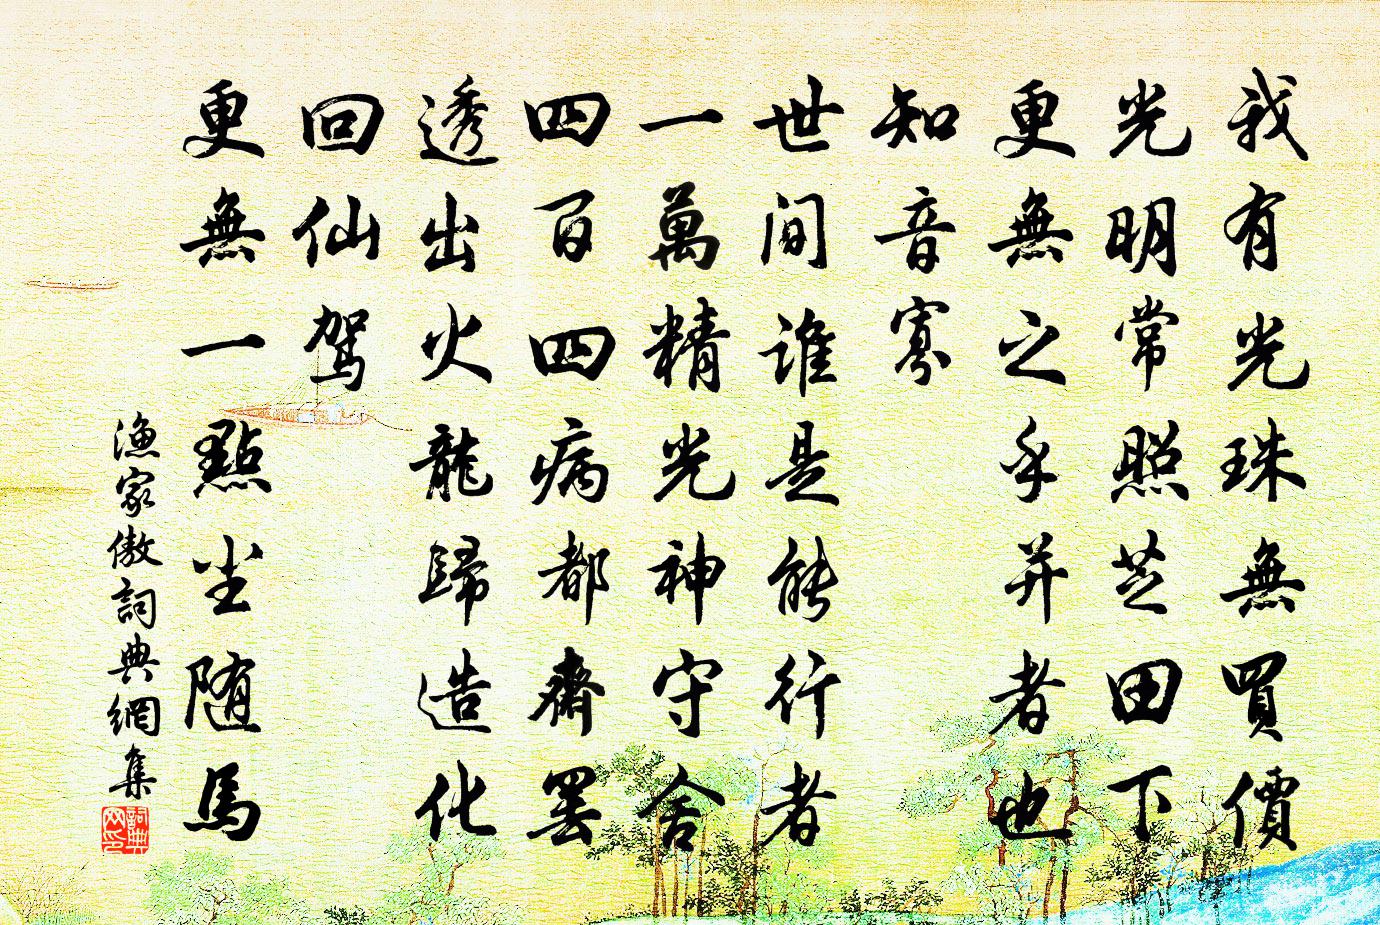 我有光珠無買價
光明常照芝田下
更無之乎并者也
知音寡
世間誰是能行者
一萬精光神守舍
四百四病都齋罷
透出火龍歸造化
回仙駕
更無一點尘随馬
漁家傲詞典網集
詞典网印